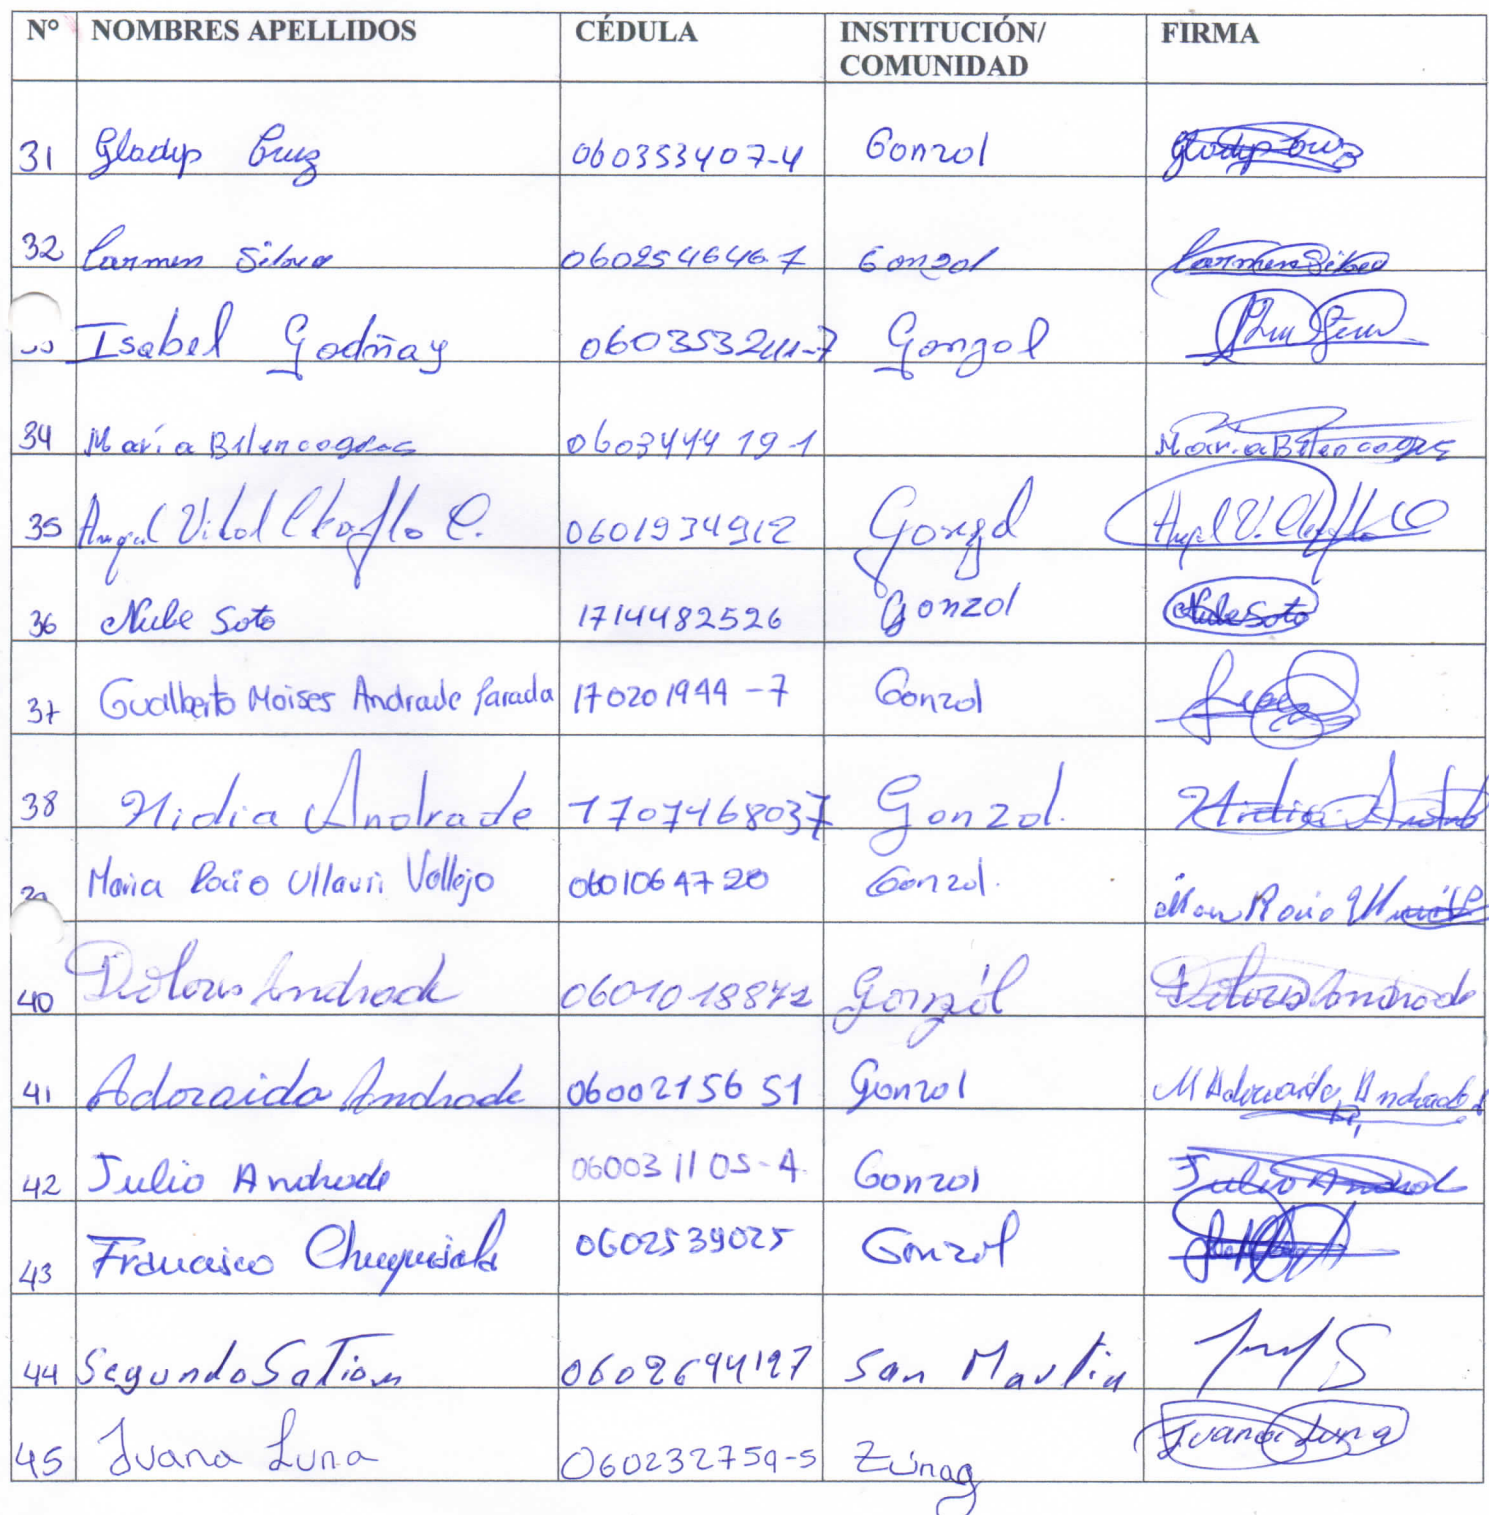 N° NOMBRES APELLIDOS CÉDULA INSTITUCIÓN/ COMUNIDAD FIRMA
31 Gladys Cruz 060353407-4 Gonzol Gladys Cruz
32 Carmen Silva 060254646-7 Gonzol Carmen Silva
Isabel Godñay Gonzol
34 María 06034441 9-1 Maria
35 Angel Vidal Chafla C. 0601934912 Gonzol Angel V. Chafla C
36 Nube Soto 1714482526 Gonzol Nube Soto
37 Gualberto Moises Andrade Parada 170201944-7 Gonzol
38 Nidia Andrade 1707468037 Gonzol. Nidia Andrade
Maria Rocio Ullauri Vallejo 0601064720 Gonzol. Rocio
40 Dolores Andrade 0601018872 Gonzól Dolores Andrade
41 Adoraida Andrade 0600215651 Gonzol M Adoraida Andrade
42 Julio Andrade 060031105-4 Gonzol Julio Andrade
43 Francisco 0602539025 Gonzol
44 Segundo 0602694197 San Martin
45 Juana Luna 060232759-5 Zúnag Juana Luna